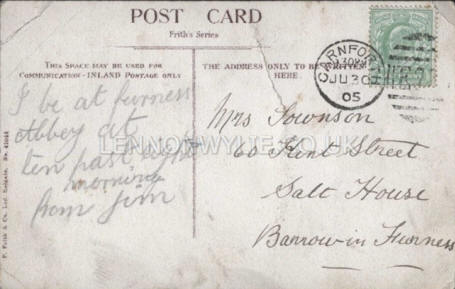 POST CARD
Frith's Series
THIS SPACE MAY BE USED FOR
COMMUNICATION - INLAND POSTAGE ONLY
THE ADDRESS ONLY TO BE WRITTEN
HERE.
I be at furness
Abbey at
ten past eight
morning
from Jim
Mrs Townson
60 Kent Street
Salt House
Barrow in Furness
CARNFORTH
JU 30
05
LENNONWYLIE.CO.UK
F. Frith & Co. Ltd. Reigate. No.